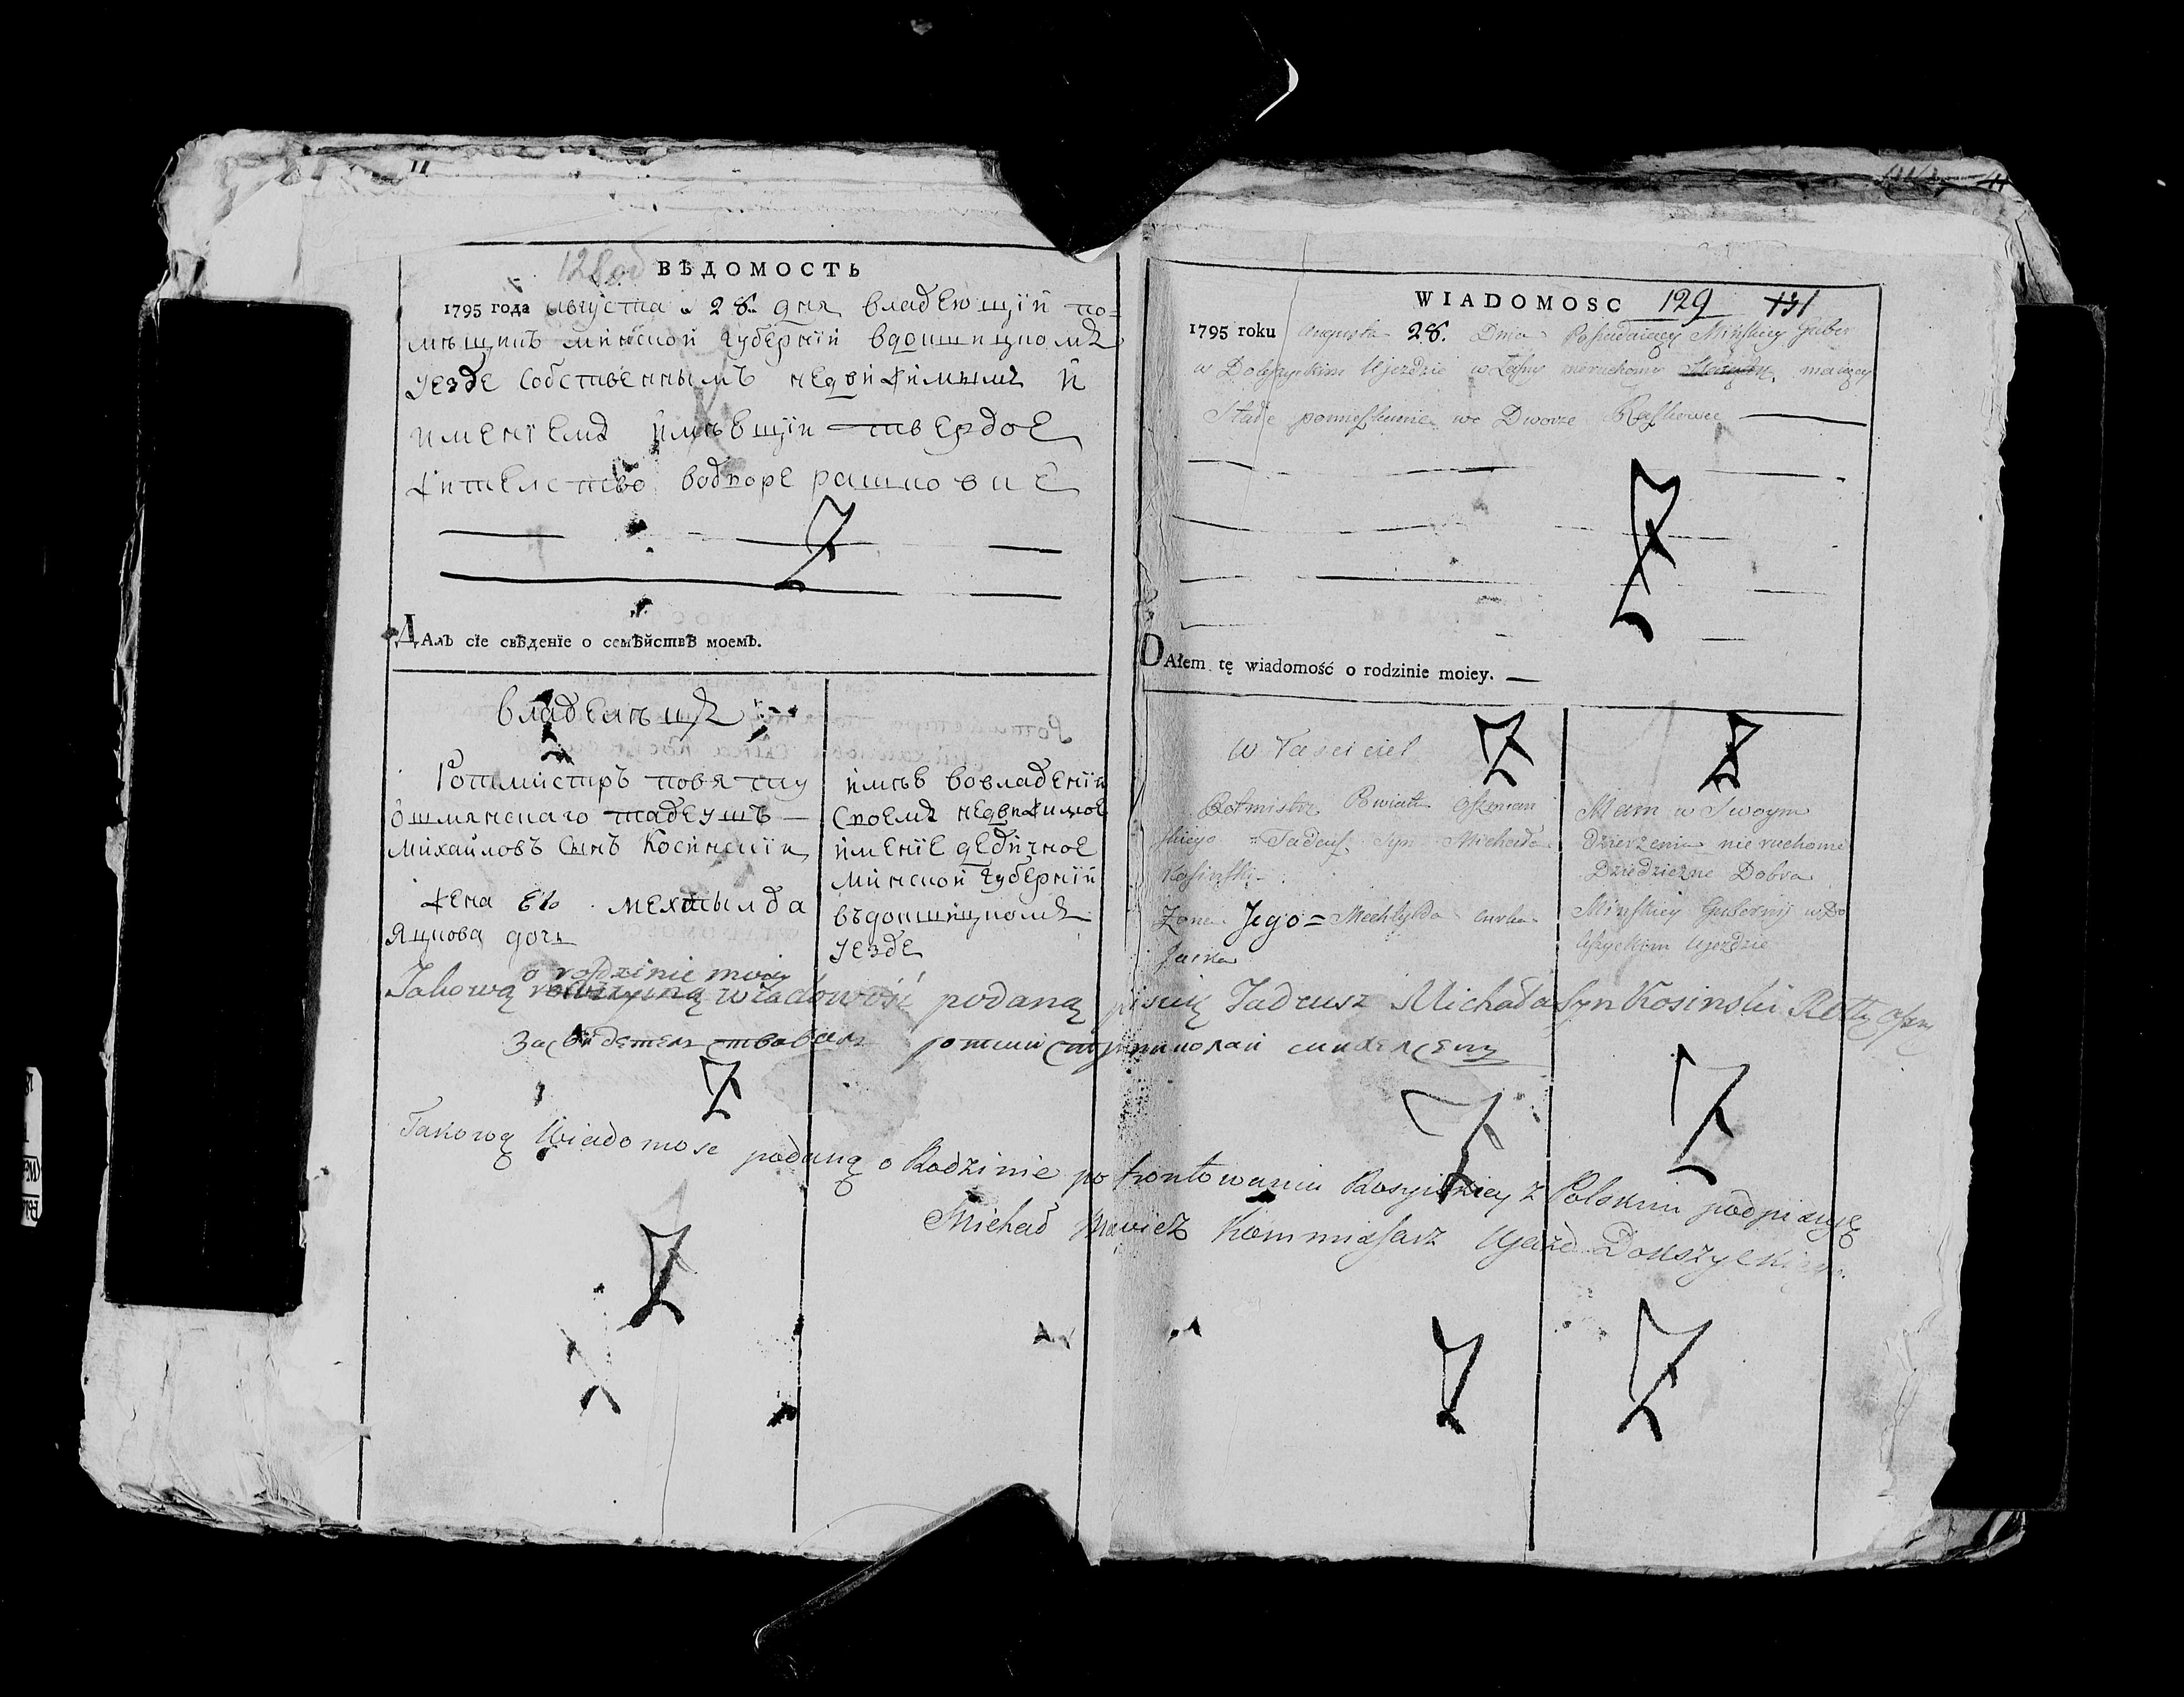 11
128об
ВѢДОМОСТЬ
1795 года августа 28 дня владеющій по=
мѣщикъ минской губерніи вдокшицкомъ
уезде собственнымъ недвижимымъ
имениемъ имѣющій твердое
жителство водворе рашковце
ДАлъ сїе свѣденїе о семѣйствѣ моемъ.
владелецъ
Ротмистръ повяту
ошмянскаго тадеушъ
михайловъ сынъ косинский
жена его мехтылда
яцкова дочь
имѣю вовладении
своемъ недвижимое
имение дедичное
минской губерний
въдокшицкомъ
уезде
WIADOMOSC 129 131
1795 roku Augusta 28. Dnia Posiadaiący Minskiey Guber
w Dokszyckim Ujezdzie nieruchomy maiący
Stałe pomieszkanie we Dworze Raszkowce
DAłem tę wiadomość o rodzinie moiey.
właściciel
Rotmistrz Powiatu Oszmian
skiego = Tadeusz Syn Michała
Kosinski
Zona Jego = Mechtylda curka
Jacka
Mam w Swoym
Dzierzeniu nieruchome
Dziedziczne Dobra
Minskiey Gubernij w Do
kszyckim Ujezdzie
o rodzinie moiey
Takową wiadomość podaną Tadeusz Michała Syn Kosinski
ротмистръ николай
Takową Wiadomosc podaną o Rodzinie po Rosyiskiey z Polskim podpisuię
Michał Kommissarz Ujazd Dokszyckiego.